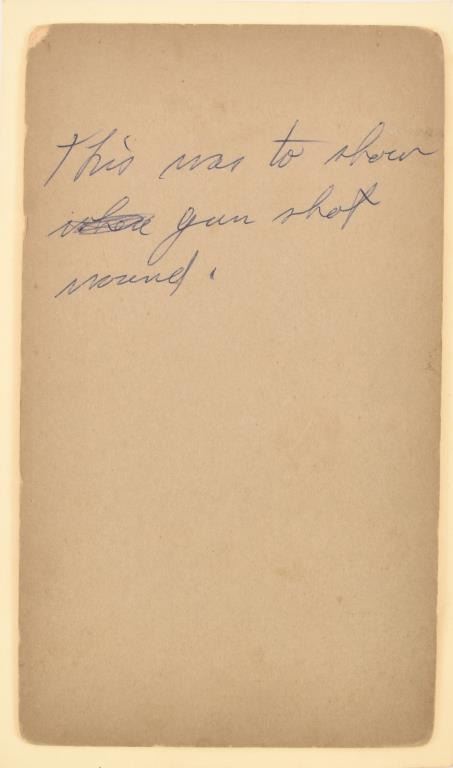 This was to show
gun shot
wound.